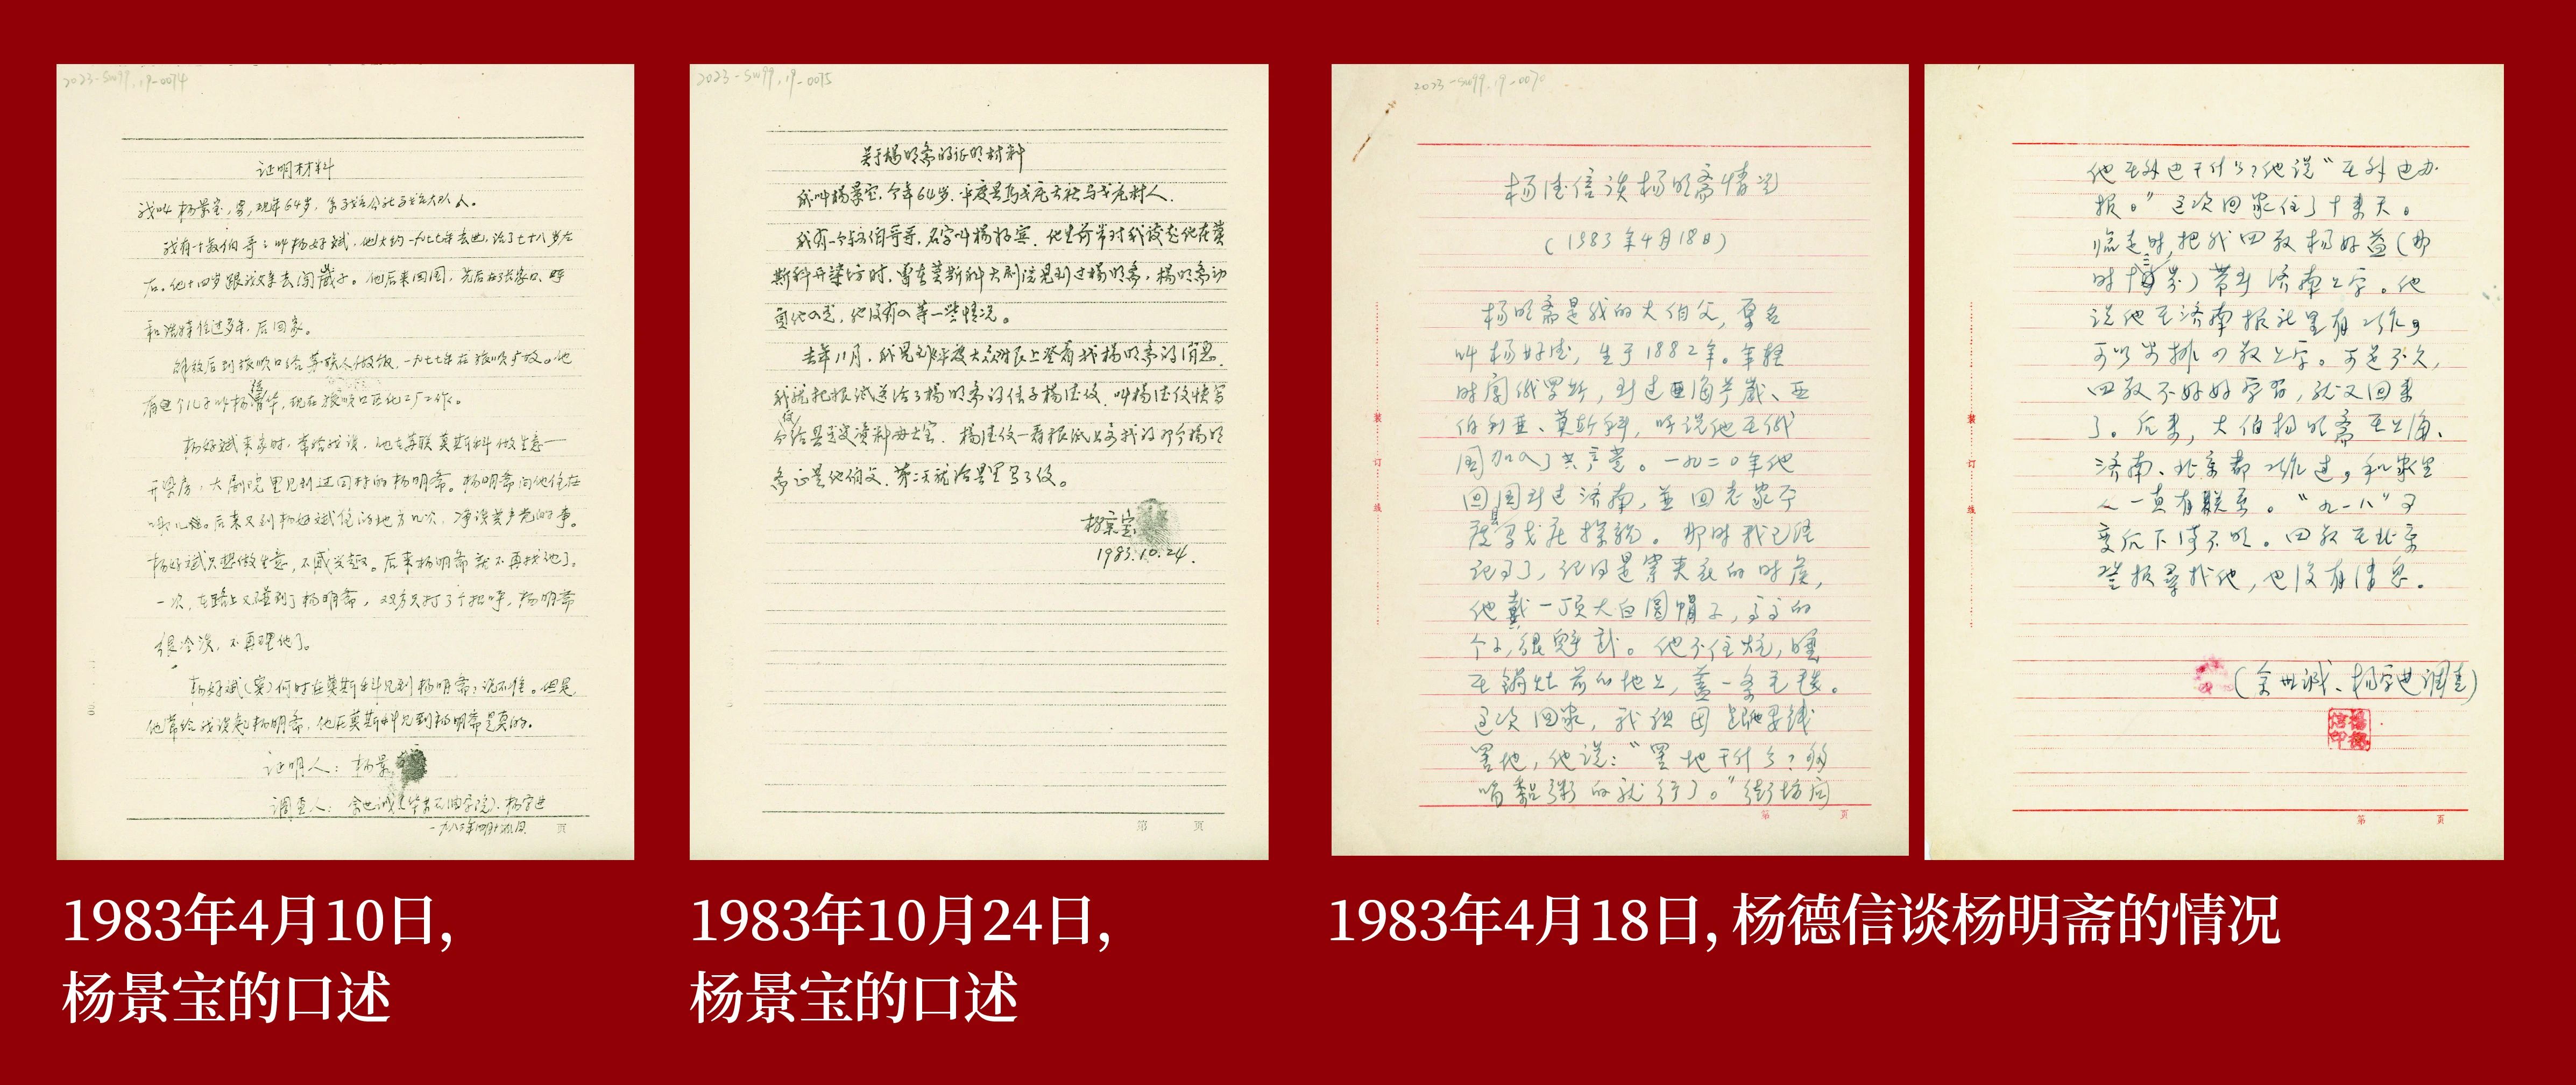 2023-SW99.19-0074
证明材料
我叫杨景宝,男,现年64岁,
我有个叔伯哥哥叫杨好斌,他大约一九七七年去世,活了七十八岁左
右。他十四岁跟我父亲去闯崴子。他后来回国,先后在张家口、呼
和浩特住过多年,后回家。
解放后到旅顺口给苏联人做饭,一九七七年在旅顺
有他个儿子叫杨
杨好斌来家时,常给我谈,他在苏联莫斯科做生意——
开染房,大剧院里见到过同村的杨明斋。杨明斋问他住在
哪儿 。后来又到杨好斌住的地方几次,净谈共产党的事。
杨好斌只想做生意,不感兴趣。后来杨明斋就不再找他了。
一次,在路上又碰到了杨明斋,双方只打了个招呼,杨明斋
很冷淡,不再理他了。
杨好斌(宾)何时在莫斯科见到杨明斋,说不准。但是,
他常给我谈起杨明斋,他在莫斯科见到杨明斋是真的。
证明人:杨景
调查人:余世诚(华东石油学院)、杨
页
2023-SW99.19-0075
关于杨明斋的证明材料
我叫杨景宝,今年64岁,平度县马戈庄公社马戈庄村人。
我有一个叔伯哥哥,名字叫杨好宾。他生前常对我谈起他在莫
斯科开染坊时,曾在莫斯科大剧院见到过杨明斋,杨明斋动
员他入党,他没有入等一些情况。
去年11月,我见到平度大众报上登着找杨明斋的消息,
我就把报纸送给了杨明斋的侄子杨德信,叫杨德信快写
信给县党史资料办公室,杨德信一看报纸上要找的那个杨明
斋正是他伯父,第二天就给县里写了信。
杨景宝
1983.10.24.
第 页
2023-SW99.19-0070
杨德信谈杨明斋情况
(1983年4月18日)
杨明斋是我的大伯父,原名
叫杨好德,生于1882年。年轻
时闯俄罗斯,到过海参崴、西
伯利亚、莫斯科,听说他在俄
国加入了共产党。一九二〇年他
回国到过济南,并回老家平
度马戈庄探亲。那时我已经
记事了,记得是穿夹衣的时候,
他戴一顶大白圆帽子,高高的
个子,很魁武。他不住炕,睡
在锅灶前的地上,盖一条毛毯。
这次回家,我祖母跟他要钱
置地,他说:“置地干什么?够
喝黏粥的就行了。”街坊问
第 页
装
订
线
他在外边干什么?他说“在外边办
报。”这次回家住了十来天。
临走时,把我四叔杨好益(那
时十 岁)带到济南上学。他
说他在济南报社里有工作,
可以安排四叔上学。可是不久,
四叔不好好学习,就又回来
了。后来,大伯杨明斋在上海、
济南、北京都工作过,和家里
人一直有联系。“九一八”事
变后下落不明。四叔在北京
登报寻找他,也没有消息。
(余世诚、杨 调查)
杨德信印
第 页
装
订
线
1983年4月10日,
杨景宝的口述
1983年10月24日,
杨景宝的口述
1983年4月18日, 杨德信谈杨明斋的情况